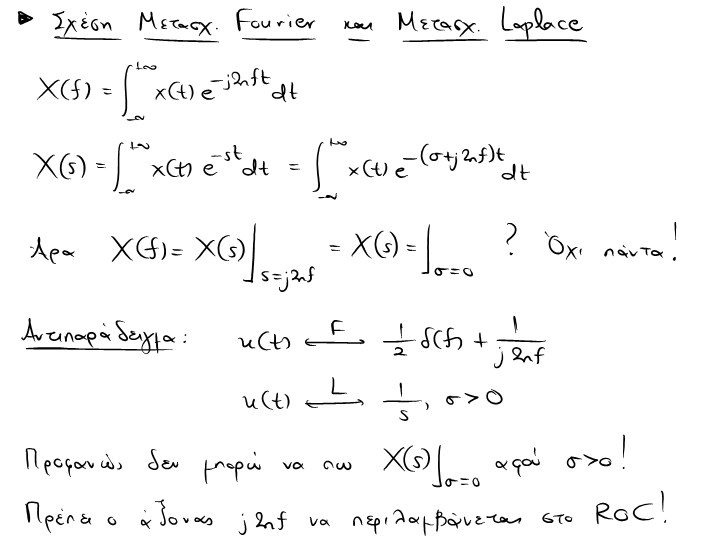 ▶ Σχέση Μετασχ. Fourier και Μετασχ. Laplace
X(f) = ∫_{-∞}^{+∞} x(t) e^{-j2πft} dt
X(s) = ∫_{-∞}^{+∞} x(t) e^{-st} dt = ∫_{-∞}^{+∞} x(t) e^{-(σ+j2πf)t} dt
Άρα X(f) = X(s)|_{s=j2πf} = X(s) = |_{σ=0} ? Όχι πάντα!
Αντιπαράδειγμα: u(t) ⟷^{F} 1/2 δ(f) + 1/(j2πf)
u(t) ⟷^{L} 1/s, σ>0
Προφανώς δεν μπορώ να πω X(s)|_{σ=0} αφού σ>0!
Πρέπει ο άξονας j2πf να περιλαμβάνεται στο ROC!